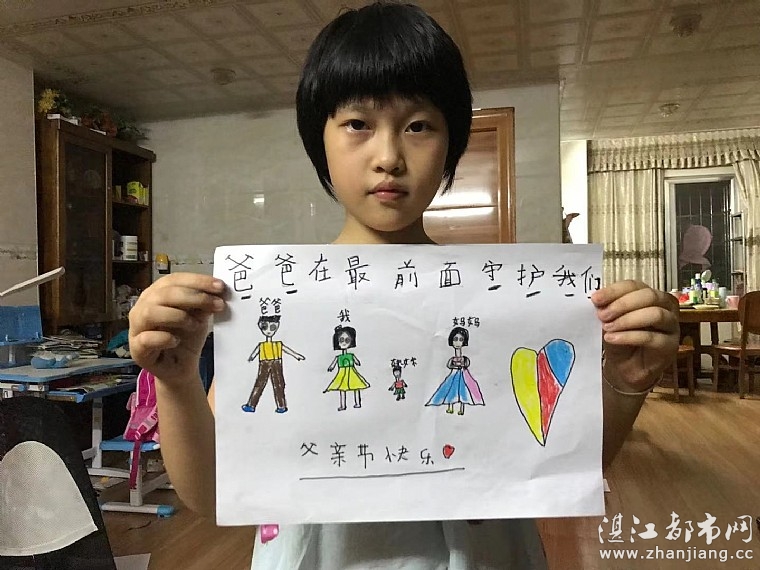 爸爸在最前面守护我们
爸爸
我
妈妈
父亲节快乐
湛江都市网
www.zhanjiang.cc